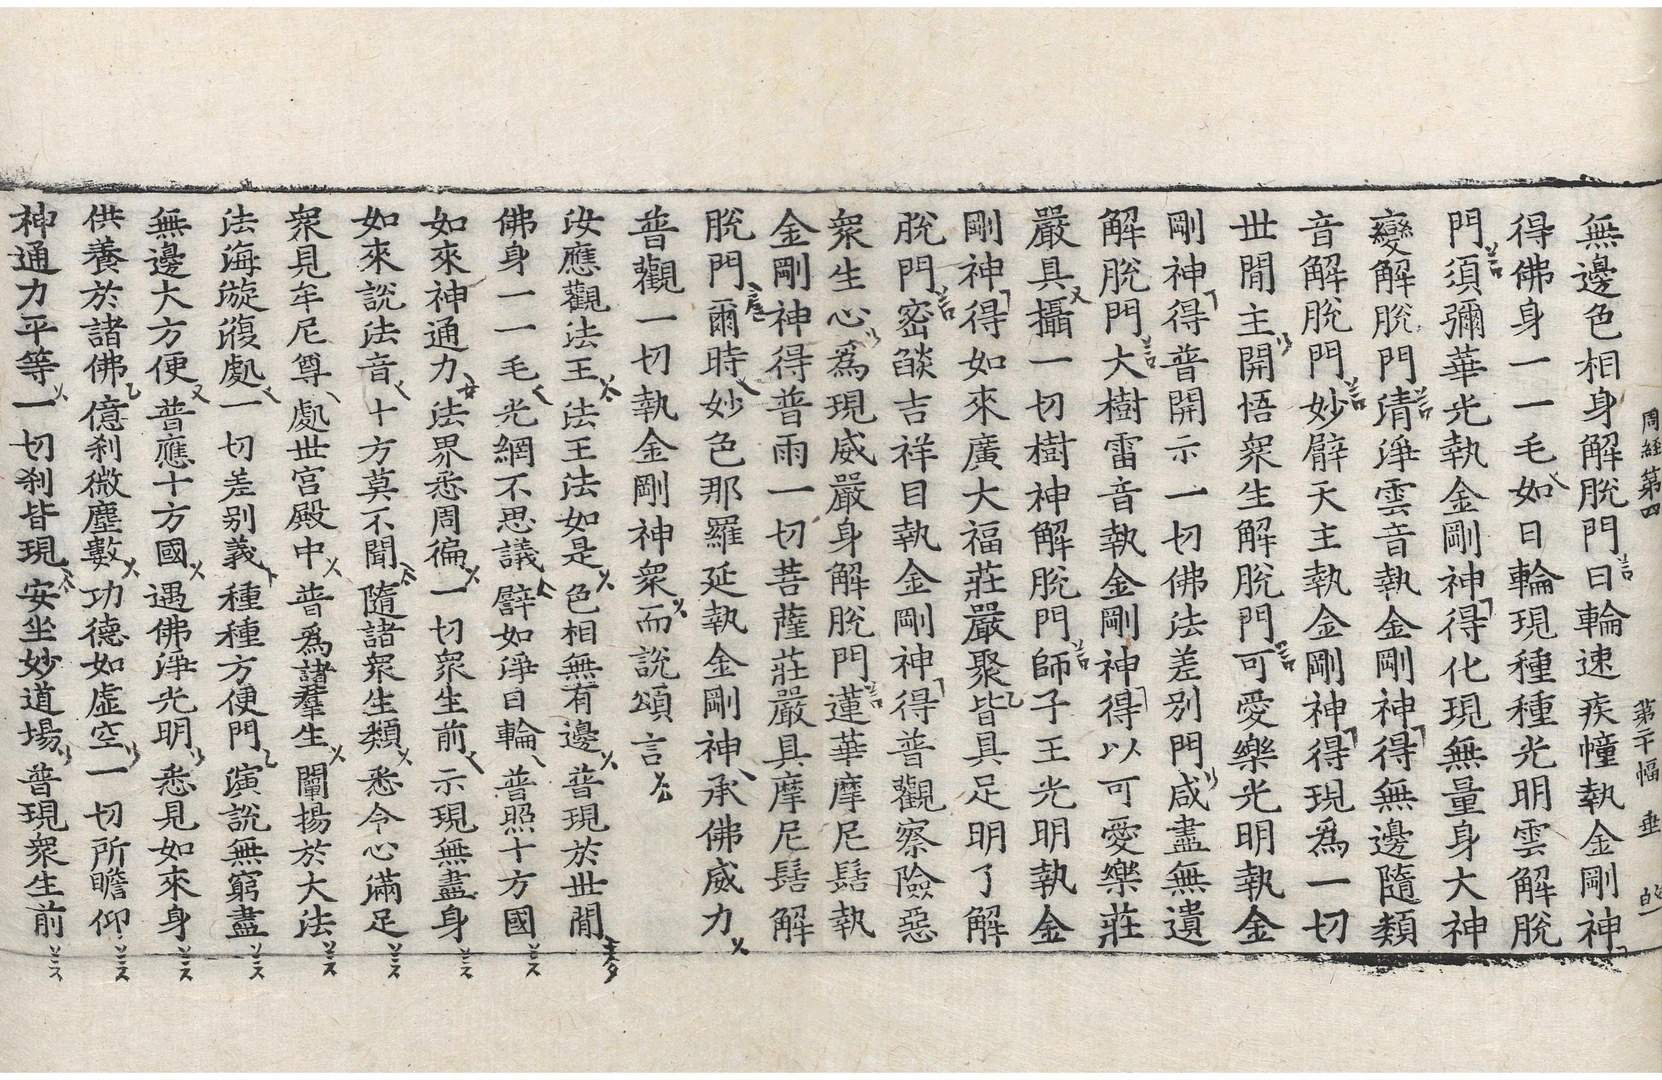 周経第四
無邊色相身解脫門日輪速疾幢執金剛神
得佛身一一毛如日輪現種種光明雲解脫
門須彌華光執金剛神得化現無量身大神
變解脫門清淨雲音執金剛神得無邊隨類
音解脫門妙臂天主執金剛神得現爲一切
世閒主開悟衆生解脫門可愛樂光明執金
剛神得普開示一切佛法差別門咸盡無遺
解脫門大樹雷音執金剛神得以可愛樂莊
嚴具攝一切樹神解脫門師子王光明執金
剛神得如來廣大福莊嚴聚皆具足明了解
脫門密焰吉祥目執金剛神得普觀察險惡
衆生心爲現威嚴身解脫門蓮華摩尼髻執
金剛神得普雨一切菩薩莊嚴具摩尼髻解
脫門爾時妙色那羅延執金剛神承佛威力
普觀一切執金剛神衆而說頌言
汝應觀法王 法王法如是 色相無有邊 普現於世閒
佛身一一毛 光網不思議 譬如淨日輪 普照十方國
如來神通力 法界悉周徧 一切衆生前 示現無盡身
如來說法音 十方莫不聞 隨諸衆生類 悉令心滿足
衆見牟尼尊 處世宮殿中 普爲諸羣生 闡揚於大法
法海漩澓處 一切差別義 種種方便門 演說無窮盡
無邊大方便 普應十方國 遇佛淨光明 悉見如來身
供養於諸佛 億刹微塵數 功德如虛空 一切所瞻仰
神通力平等 一切刹皆現 安坐妙道場 普現衆生前